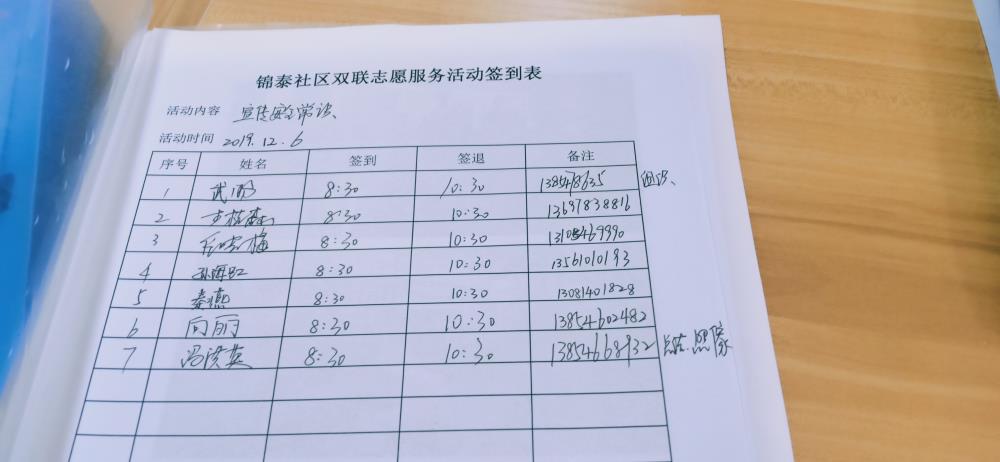 锦泰社区双联志愿服务活动签到表
活动内容 宣传安全常识、
活动时间 2019.12.6
序号 姓名 签到 签退 备注
1 武 8:30 10:30 组织、
2 8:30 10:30 13697838816
3 梅 8:30 10:30
4 8:30 10:30 13561010193
5 秦燕 8:30 10:30 13081401828
6 向丽 8:30 10:30 13854602482
7 冯洪英 8:30 10:30 13854668932 照像